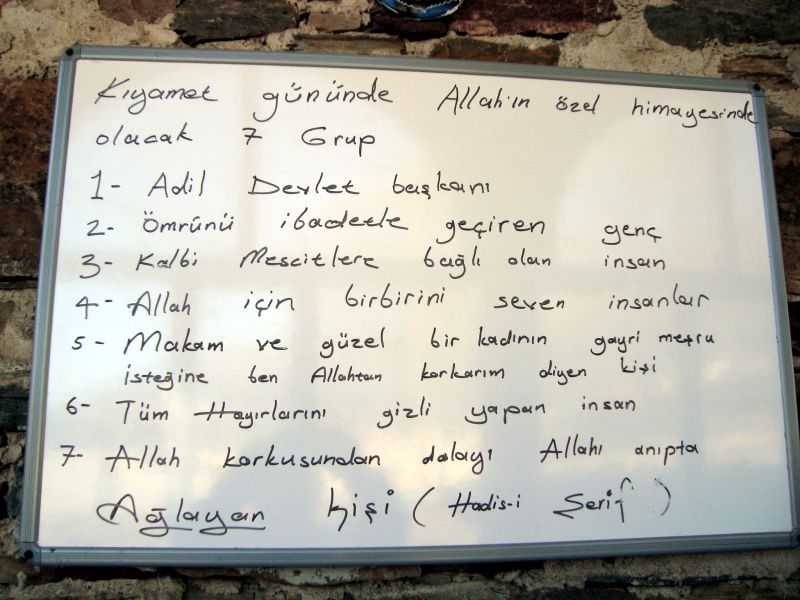 Kıyamet gününde Allah'ın özel himayesinde
olacak 7 Grup
1- Adil Devlet başkanı
2- Ömrünü ibadetle geçiren genç
3- Kalbi Mescitlere bağlı olan insan
4- Allah için birbirini seven insanlar
5- Makam ve güzel bir kadının gayri meşru
isteğine ben Allahtan korkarım diyen kişi
6- Tüm Hayırlarını gizli yapan insan
7- Allah korkusundan dolayı Allahı anıpta
Ağlayan kişi (Hadis-i Şerif)